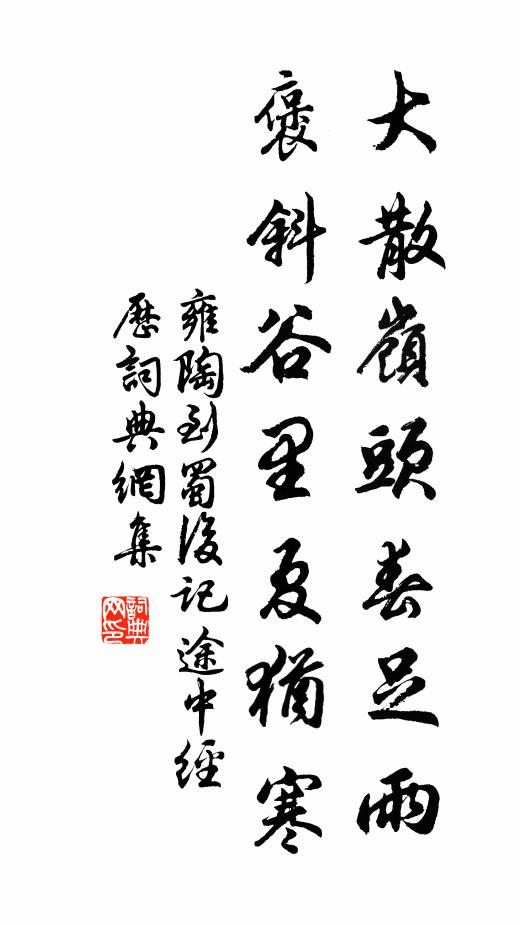 大散嶺頭春足雨
褒斜谷里夏猶寒
雍陶到蜀後記途中經
歷詞典網集
詞典網印